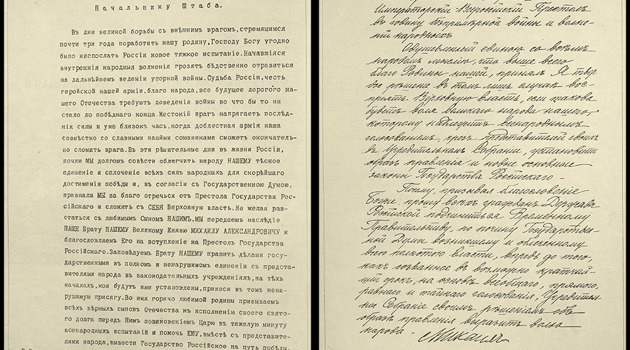 Начальнику Штаба.
Въ дни великой борьбы съ внѣшнимъ врагомъ, стремящимся
почти три года поработить нашу родину, Господу Богу угодно
было ниспослать Россіи новое тяжкое испытаніе. Начавшіяся
внутреннія народныя волненія грозятъ бѣдственно отразиться
на дальнѣйшемъ веденіи упорной войны. Судьба Россіи, честь
геройской нашей арміи, благо народа, все будущее дорогого нашего
Отечества требуютъ доведенія войны во что бы то ни
стало до побѣднаго конца. Жестокій врагъ напрягаетъ послѣднія
силы и уже близокъ часъ, когда доблестная армія наша
совмѣстно со славными нашими союзниками сможетъ окончательно
сломить врага. Въ эти рѣшительные дни въ жизни Россіи,
почли МЫ долгомъ совѣсти облегчить народу НАШЕМУ тѣсное
единеніе и сплоченіе всѣхъ силъ народныхъ для скорѣйшаго
достиженія побѣды и, въ согласіи съ Государственною Думою,
признали МЫ за благо отречься отъ Престола Государства Россійскаго
и сложить съ СЕБЯ Верховную власть. Не желая разстаться
съ любимымъ Сыномъ НАШИМЪ, МЫ передаемъ наслѣдіе
НАШЕ Брату НАШЕМУ Великому Князю МИХАИЛУ АЛЕКСАНДРОВИЧУ и
благословляемъ Его на вступленіе на Престолъ Государства
Россійскаго. Заповѣдуемъ Брату НАШЕМУ править дѣлами государственными
въ полномъ и ненарушимомъ единеніи съ представителями
народа въ законодательныхъ учрежденіяхъ, на тѣхъ
началахъ, кои будутъ ими установлены, принеся въ томъ ненарушимую
присягу. Во имя горячо любимой родины призываемъ
всѣхъ вѣрныхъ сыновъ Отечества къ исполненію своего святого
долга передъ Нимъ повиновеніемъ Царю въ тяжелую минуту
всенародныхъ испытаній и помочь ЕМУ, вмѣстѣ съ представителями
народа, вывести Государство Россійское на путь побѣды,
Императорскій Всероссійскій Престолъ
въ годину безпримѣрной войны и волненій
народныхъ.
Одушевленный единою со всѣмъ
народомъ мыслію, что выше всего
благо Родины нашей, принялъ Я твердое
рѣшеніе въ томъ лишь случаѣ воспріять
Верховную власть, если такова
будетъ воля великаго народа нашего,
которому надлежитъ всенароднымъ
голосованіемъ, чрезъ представителей своихъ
въ Учредительномъ Собраніи, установить
образъ правленія и новые основные
законы Государства Россійскаго.
Посему, призывая благословеніе
Божіе, прошу всѣхъ гражданъ Державы
Россійской подчиниться Временному
Правительству, по почину Государственной
Думы возникшему и облеченному
всею полнотою власти, впредь до того,
какъ созванное въ возможно кратчайшій
срокъ, на основѣ всеобщаго, прямого,
равнаго и тайнаго голосованія, Учредительное
Собраніе своимъ рѣшеніемъ объ
образѣ правленія выразитъ волю
народа.
Михаилъ